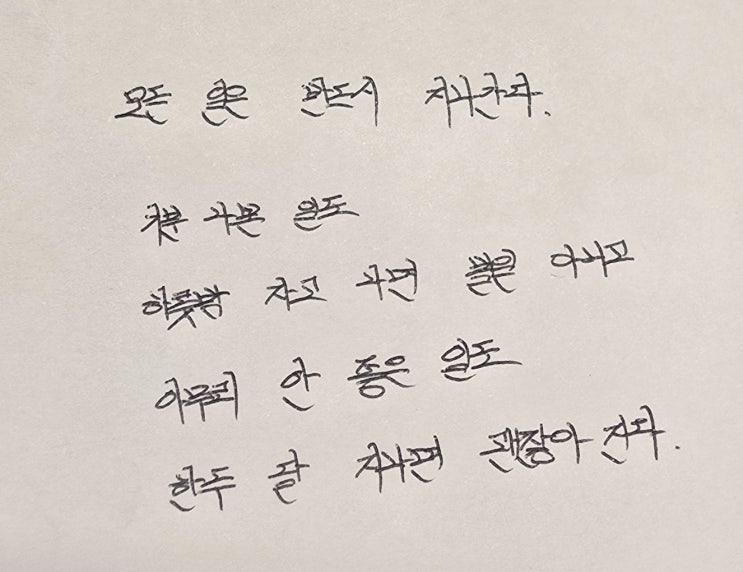 모든 일은 반드시 지나간다.
기분 나쁜 일도
하룻밤 자고 나면 별일 아니고
아무리 안 좋은 일도
한두 달 지나면 괜찮아 진다.